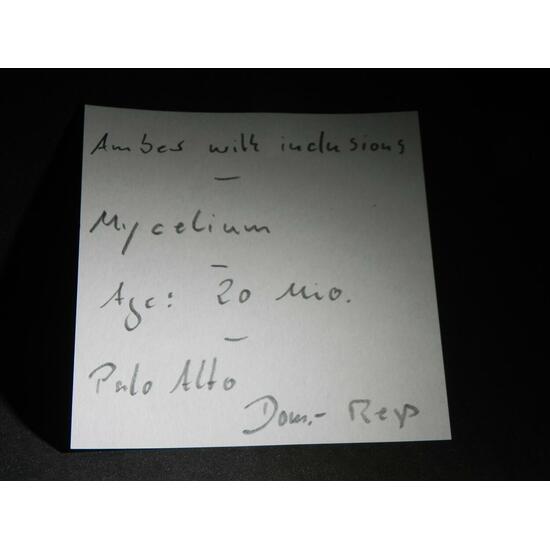 Amber with inclusions
–
Mycelium
–
Age: 20 Mio.
–
Palo Alto
Dom.- Rep